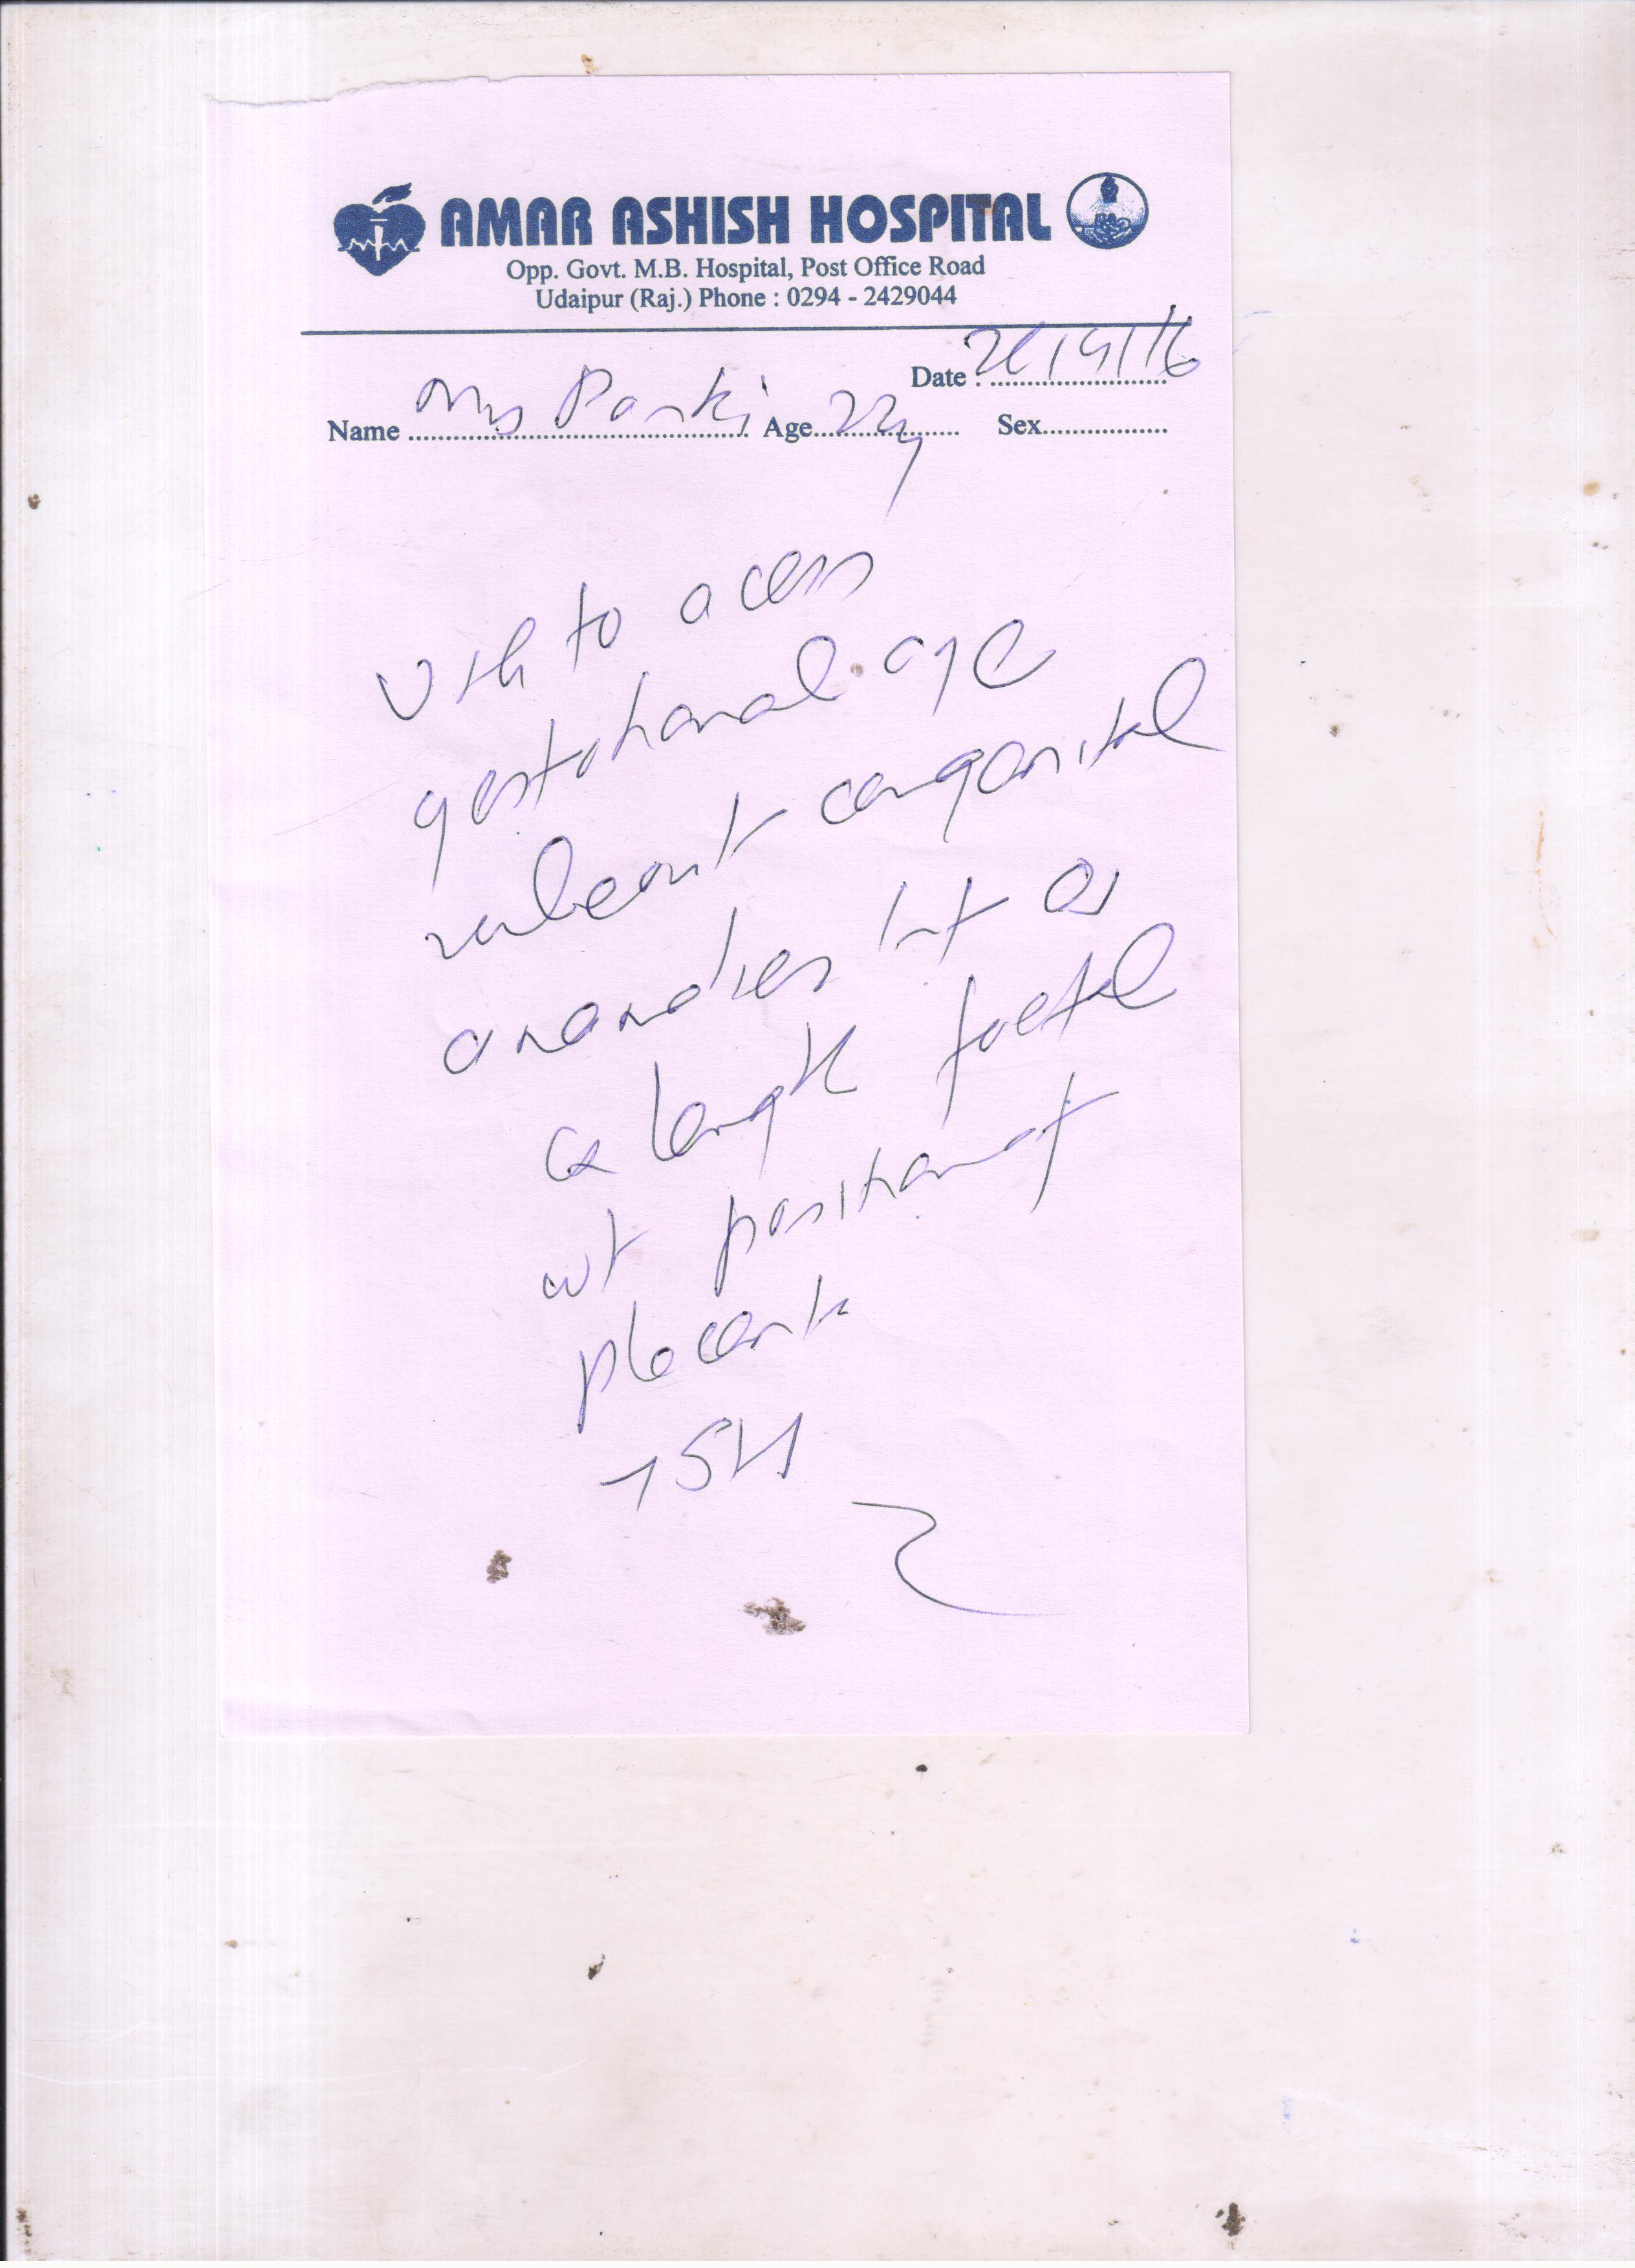 AMAR ASHISH HOSPITAL
Opp. Govt. M.B. Hospital, Post Office Road
Udaipur (Raj.) Phone : 0294 - 2429044
Date :
Name Mrs Age 22y Sex
to acess
gestational age
ruleout congenital
anamolies Int os
Cx length foetal
wt position of
placenta
TSH